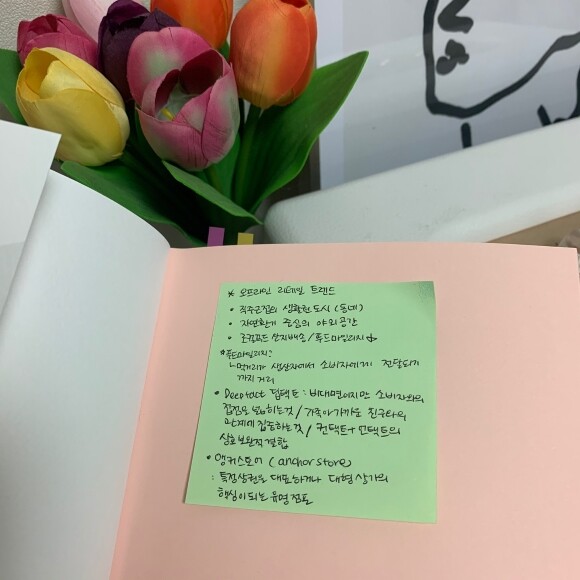 * 오프라인 리테일 트랜드
• 직주근접의 생활권도시 (동네)
• 자연환기 중심의 야외공간
• 로컬푸드 산지배송 / 푸드마일리지↓
*푸드마일리지?
ㄴ먹거리가 생산자에서 소비자에게 전달되기
까지 거리
• Deeptact 딥택트 : 비대면이지만 소비자와의
접점은 넓히는것 / 가족이나가까운 친구와의
관계에 집중하는것 / 컨택트+언택트의
상호보완적결합
• 앵커스토어 (anchor store)
: 특정상권을 대표하거나 대형상가의
핵심이되는 유명점포